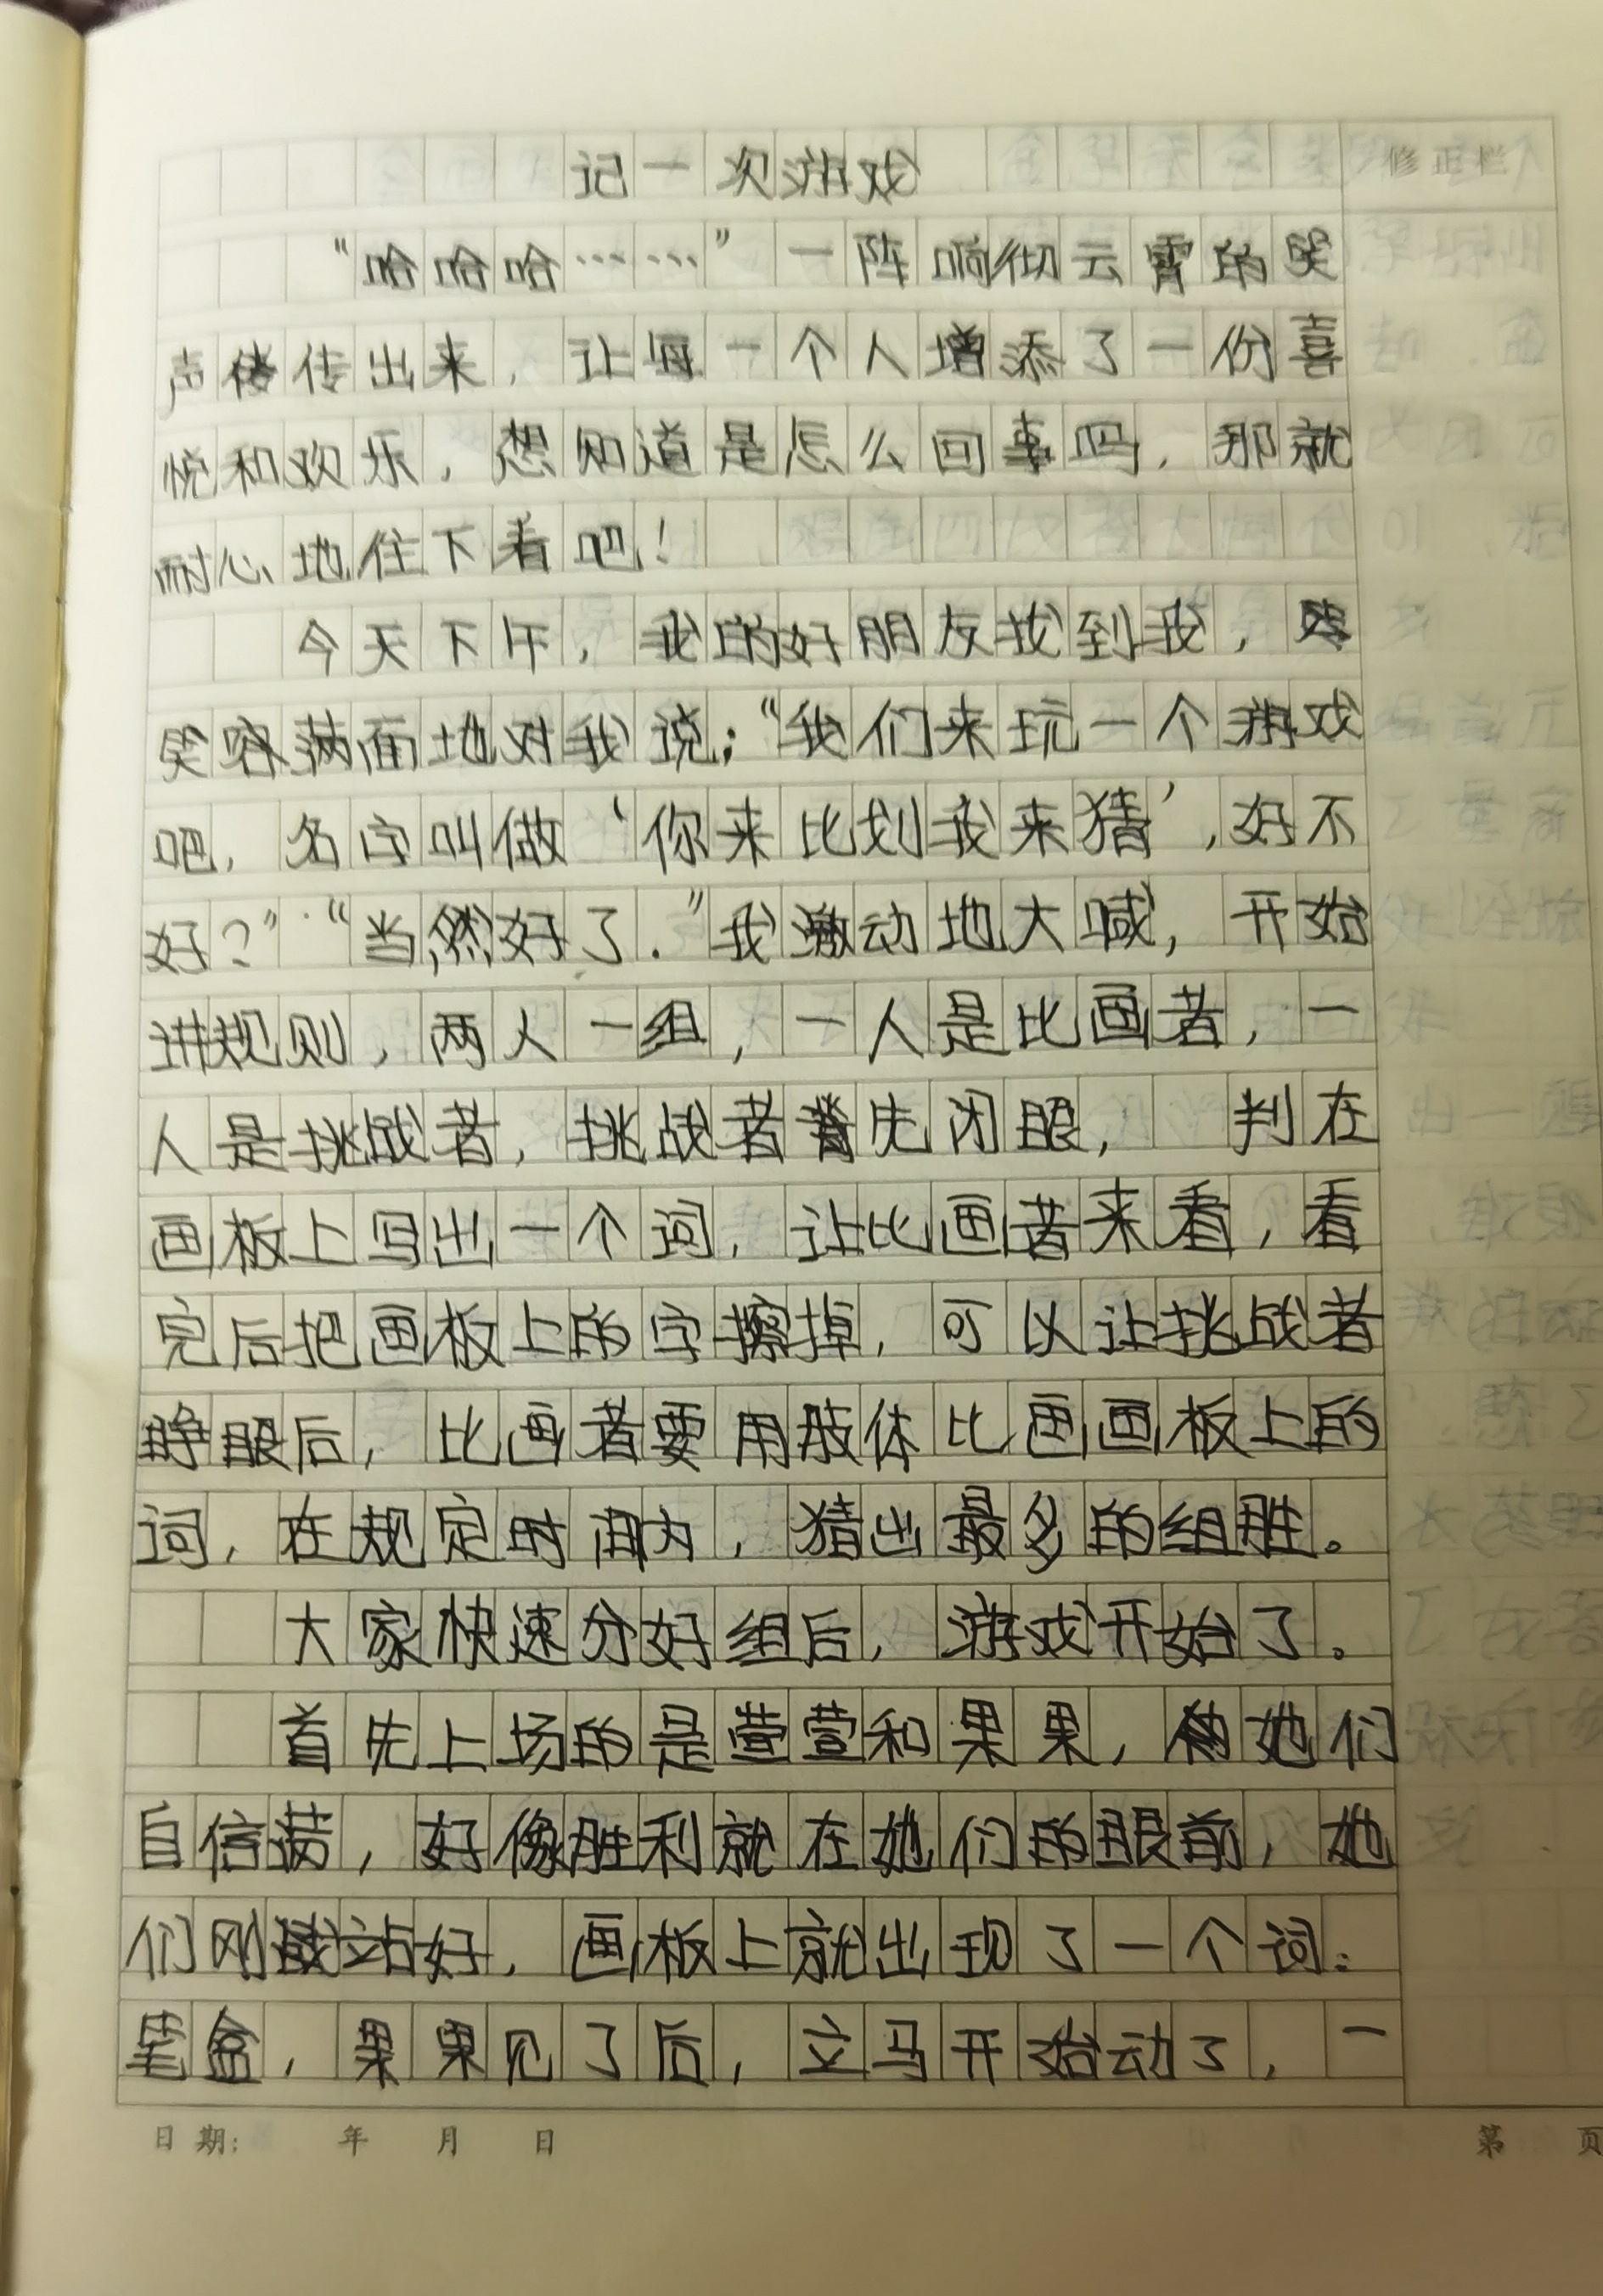 记一次游戏
修正栏
“哈哈哈……”一阵响彻云霄的笑
声传出来，让每一个人增添了一份喜
悦和欢乐，想知道是怎么回事吗，那就
耐心地住下看吧！
今天下午，我的好朋友找到我，
笑容满面地对我说；“我们来玩一个游戏
吧，名字叫做‘你来比划我来猜’，好不
好？”“当然好了．”我激动地大喊，开始
讲规则，两人一组，一人是比画者，一
人是挑战者，挑战者先闭眼，判在
画板上写出一个词，让比画者来看，看
完后把画板上的字擦掉，可以让挑战者
睁眼后，比画者要用肢体比画画板上的
词，在规定时间内，猜出最多的组胜。
大家快速分好组后，游戏开始了。
首先上场的是萱萱和果果，她们
自信满，好像胜利就在她们的眼前，她
们刚站好，画板上就出现了一个词：
笔盒，果果见了后，立马开始动了，一
日期： 年 月 日
第 页